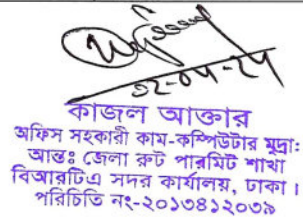 কাজল আক্তার
অফিস সহকারী কাম-কম্পিউটার মুদ্রা:
আন্তঃ জেলা রুট পারমিট শাখা
বিআরটিএ সদর কার্যালয়, ঢাকা।
পরিচিতি নং-২০১৩৪১২০৩৯